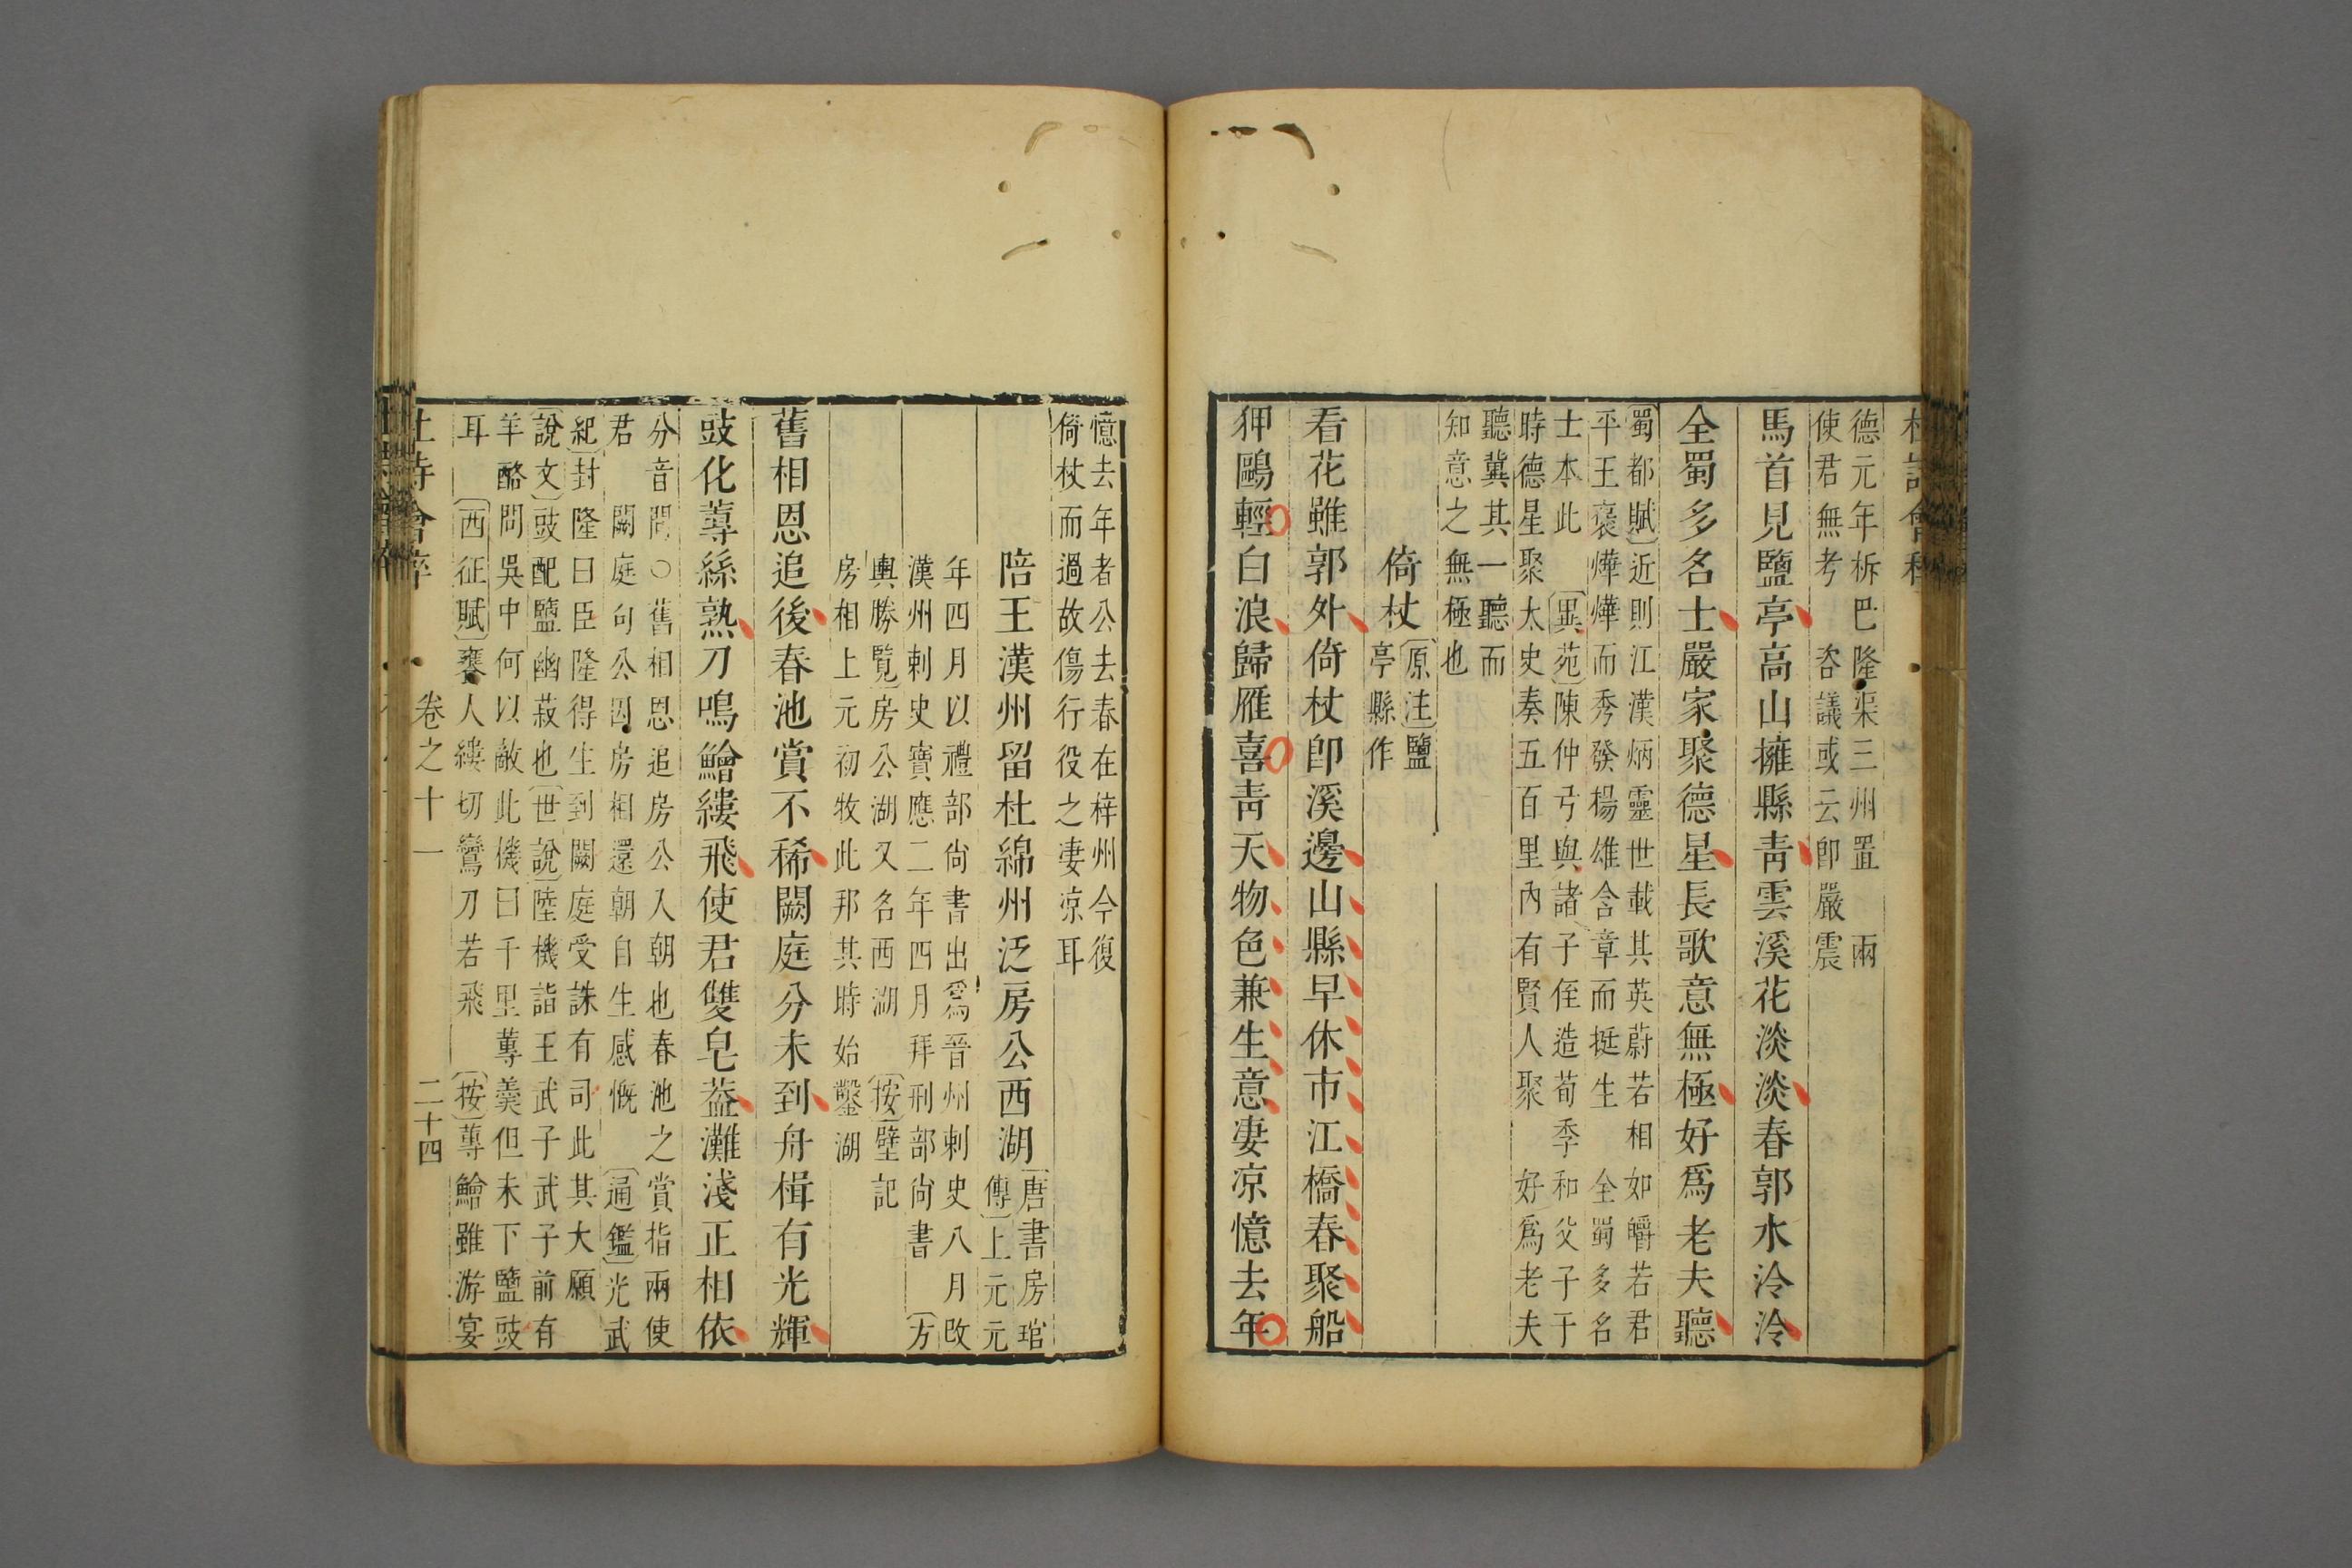 德元年柝巴隆渠三州置　兩
使君無考　咨議或云卽嚴震
馬首見鹽亭高山擁縣靑雲溪花淡淡春郭水泠泠
全蜀多名士嚴家聚德星長歌意無極好爲老夫聽
蜀都賦近則江漢炳靈世載其英蔚若相如皭若君
平王襃燁燁而秀發楊雄含章而挺生　全蜀多名
士本此　異苑陳仲弓與諸子侄造荀季和父子于
時德星聚太史奏五百里內有賢人聚　好爲老夫
聽冀其一聽而
知意之無極也
倚杖
原注鹽
亭縣作
看花雖郭外倚杖卽溪邊山縣早休市江橋春聚船
狎鷗輕白浪歸雁喜靑天物色兼生意凄涼憶去年
憶去年者公去春在梓州今復
倚杖而過故傷行役之凄涼耳
陪王漢州留杜綿州泛房公西湖
唐書房琯
傳上元元
年四月以禮部尙書出爲晉州刺史八月改
漢州刺史寶應二年四月拜刑部尙書　方
輿勝覽房公湖又名西湖　按壁記
房相上元初牧此邦其時始鑿湖
舊相恩追後春池賞不稀闕庭分未到舟楫有光輝
豉化蓴絲熟刀鳴鱠縷飛使君雙皂葢灘淺正相依
分音問○舊相恩追房公入朝也春池之賞指兩使
君　闕庭句公因房相還朝自生感慨　通鑑光武
紀封隆曰臣隆得生到闕庭受誅有司此其大願
說文豉配鹽幽菽也世說陸機詣王武子武子前有
羊酪問吳中何以敵此機曰千里蓴羹但未下鹽豉
耳　西征賦饔人縷切鸞刀若飛　按蓴鱠雖游宴
卷之十一　二十四